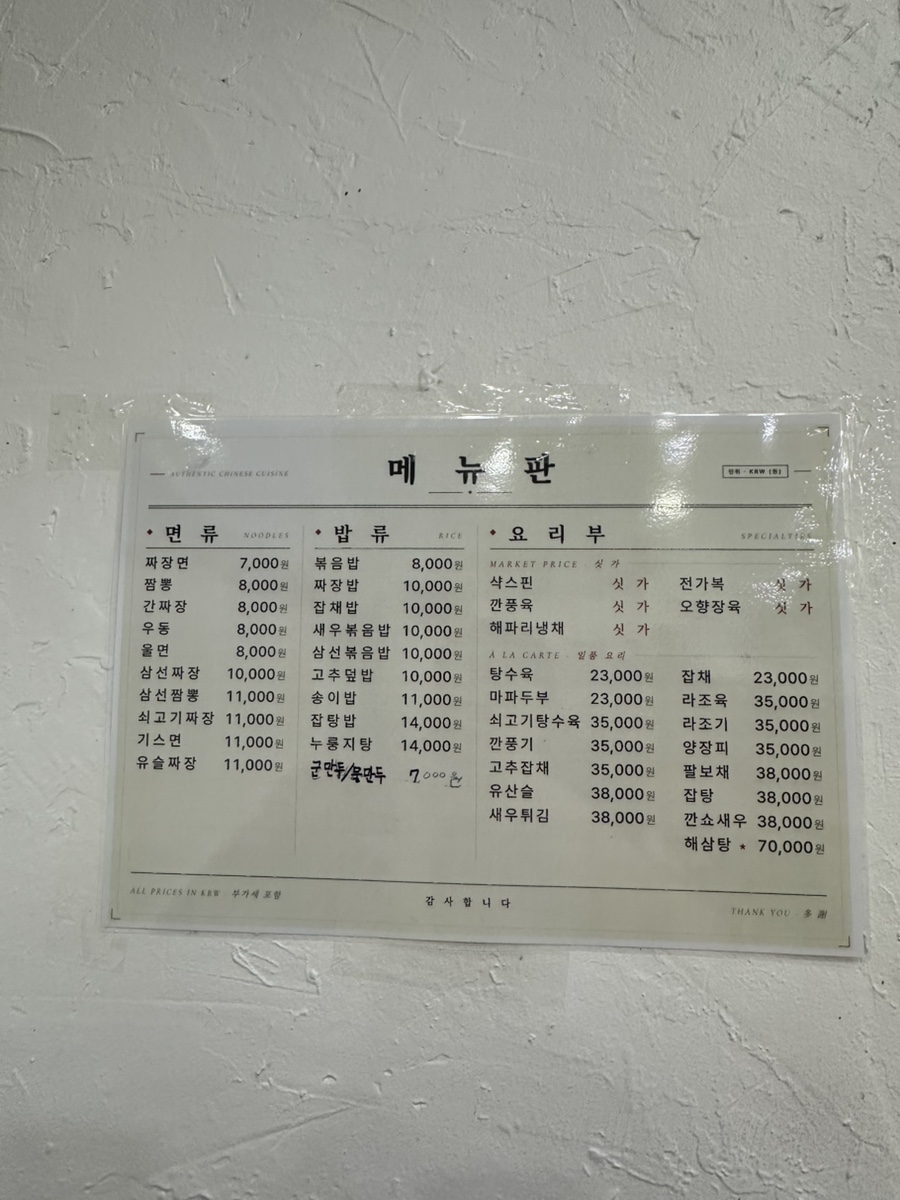 AUTHENTIC CHINESE CUISINE
메뉴판
단위 · KRW (원)
면류 NOODLES
짜장면 7,000원
짬뽕 8,000원
간짜장 8,000원
우동 8,000원
울면 8,000원
삼선짜장 10,000원
삼선짬뽕 11,000원
쇠고기짜장 11,000원
기스면 11,000원
유슬짜장 11,000원
밥류 RICE
볶음밥 8,000원
짜장밥 10,000원
잡채밥 10,000원
새우볶음밥 10,000원
삼선볶음밥 10,000원
고추덮밥 10,000원
송이밥 11,000원
잡탕밥 14,000원
누룽지탕 14,000원
군만두/물만두 7,000원
요리부 SPECIALTIES
MARKET PRICE · 싯가
샥스핀 싯가
깐풍육 싯가
해파리냉채 싯가
전가복 싯가
오향장육 싯가
A LA CARTE · 일품 요리
탕수육 23,000원
마파두부 23,000원
쇠고기탕수육 35,000원
깐풍기 35,000원
고추잡채 35,000원
유산슬 38,000원
새우튀김 38,000원
잡채 23,000원
라조육 35,000원
라조기 35,000원
양장피 35,000원
팔보채 38,000원
잡탕 38,000원
깐쇼새우 38,000원
해삼탕 * 70,000원
ALL PRICES IN KRW 부가세 포함
감사합니다
THANK YOU · 多謝